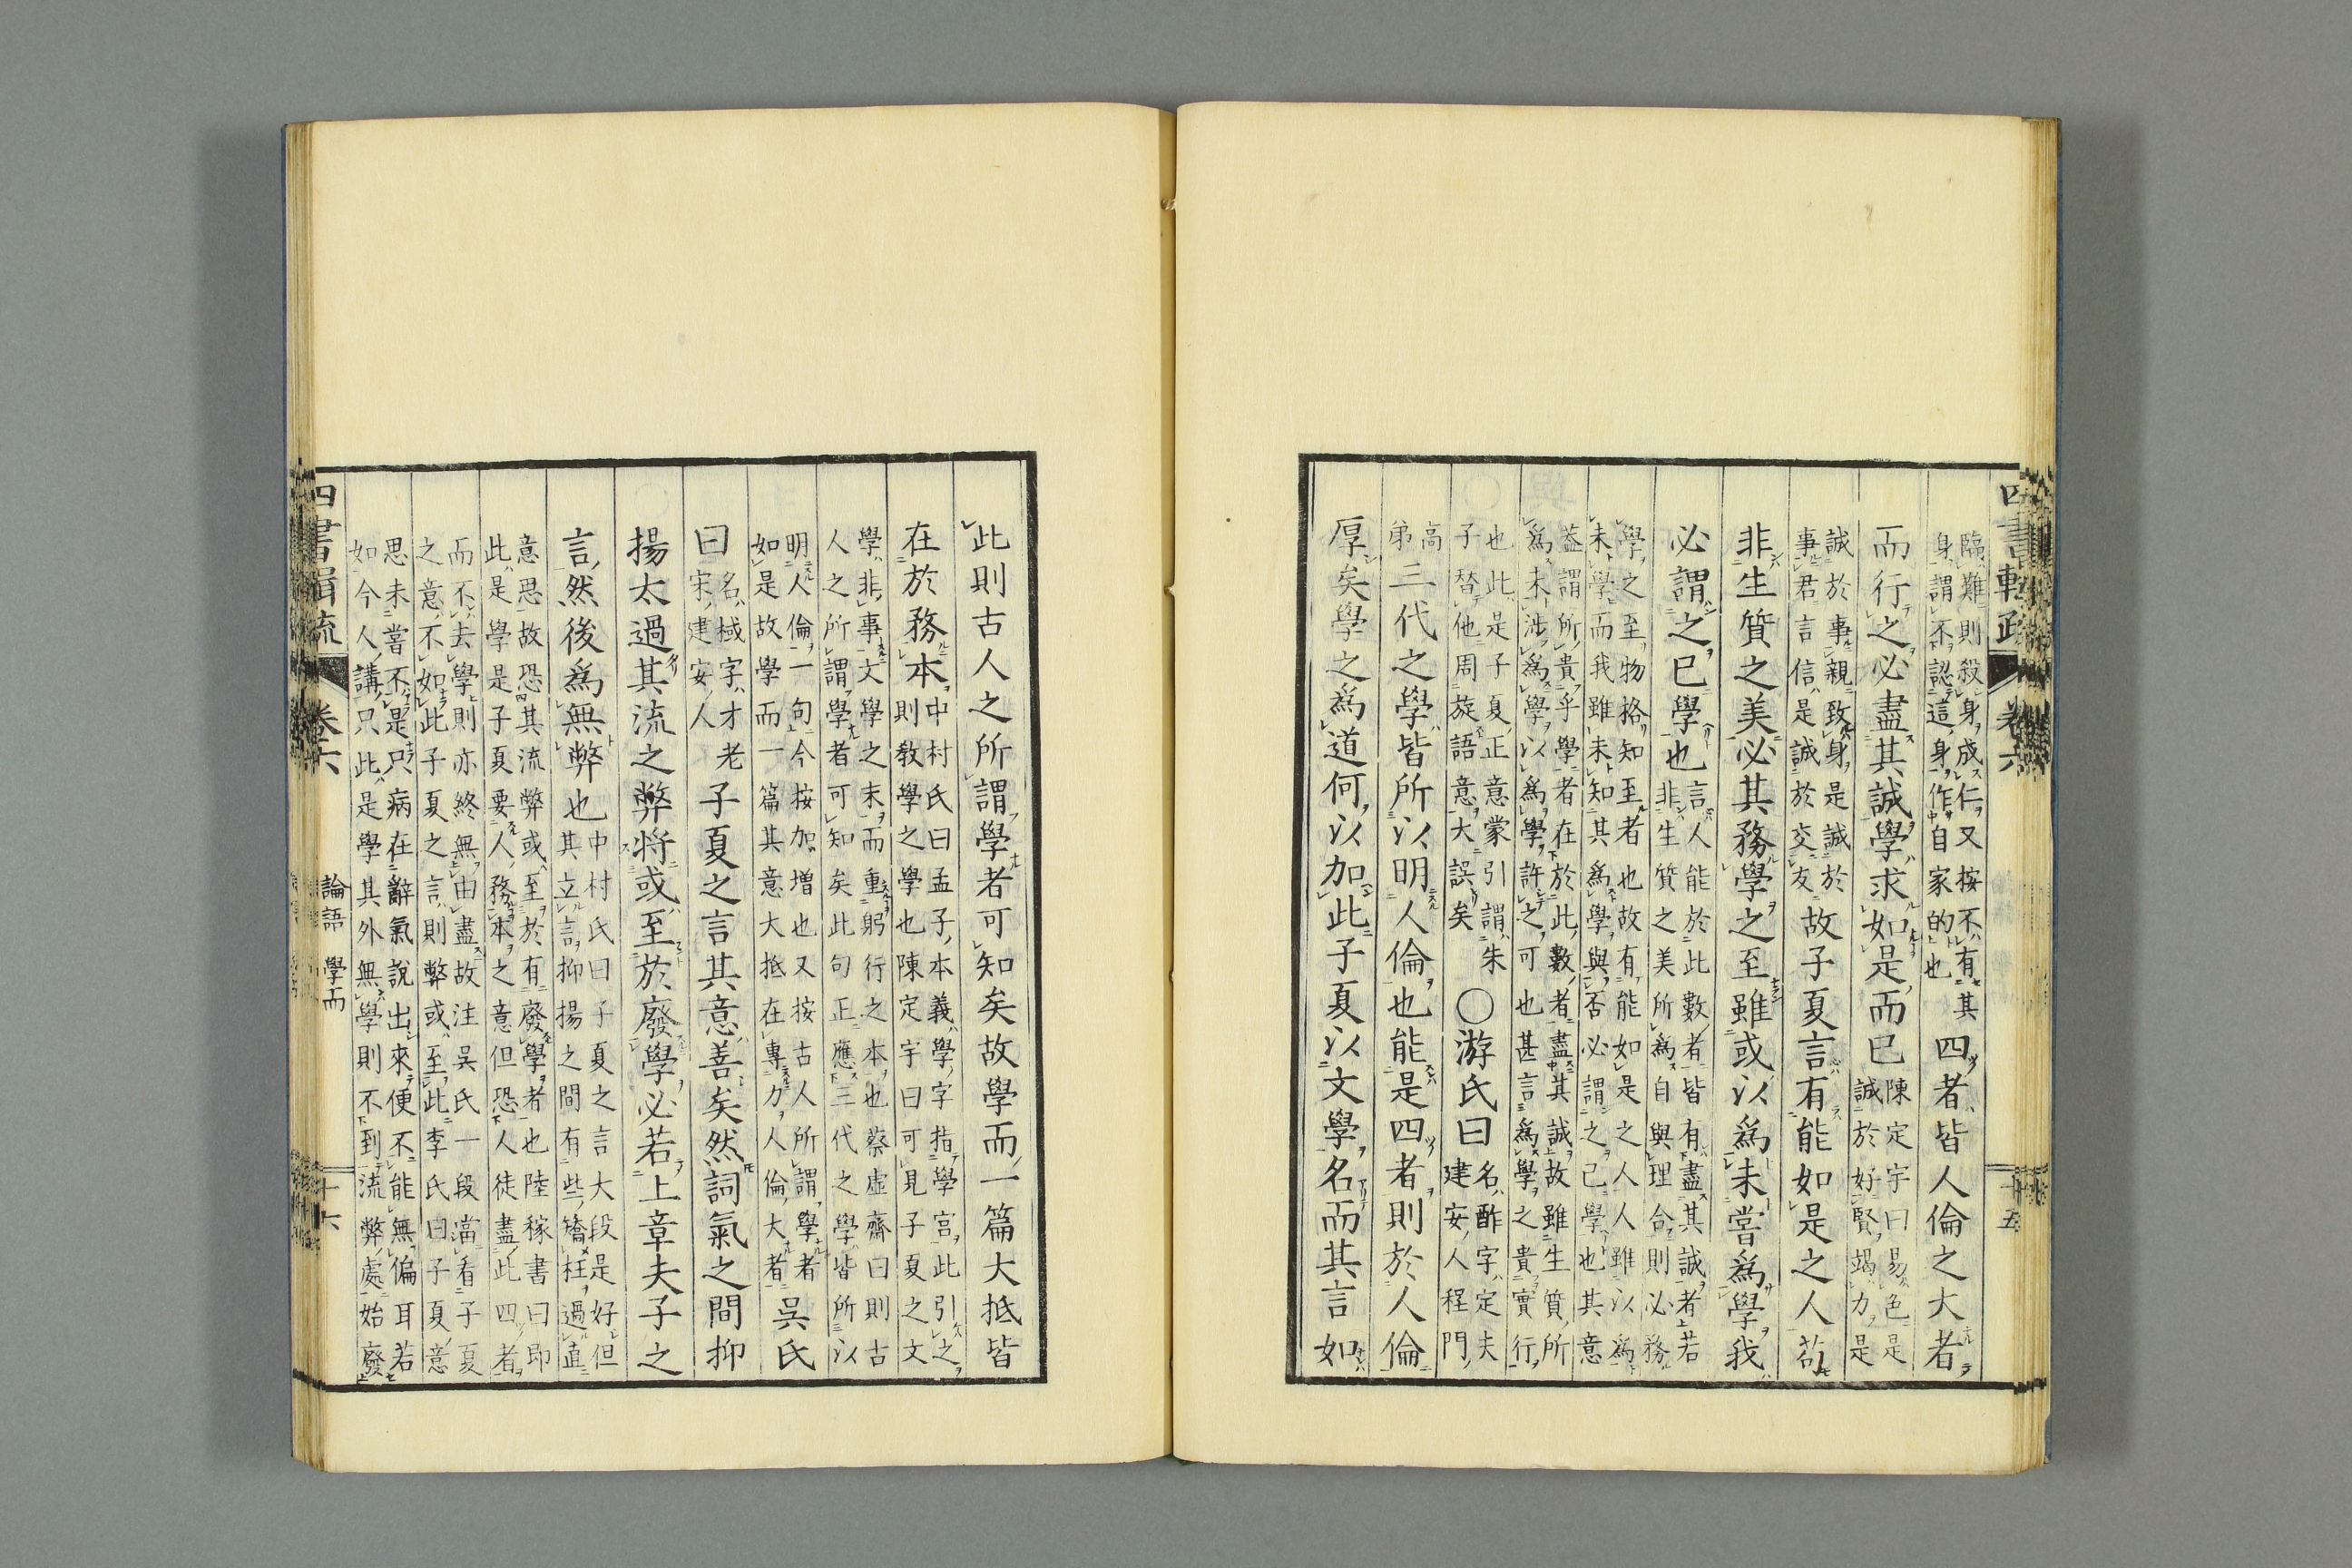 四書輯疏 卷六 十五
臨難則殺身成仁又按不有其
身謂不認這身作自家的也
四者皆人倫之大者
而行之必盡其誠學求如是而已
陳定宇曰易色是
誠於好賢竭力是
誠於事親致身是誠於
事君言信是誠於交友
故子夏言有能如是之人苟
非生質之美必其務學之至雖或以爲未嘗爲學我
必謂之已學也
言人能於此數者皆有盡其誠者若
非生質之美所爲自與理合則必務
學之至物格知至者也故有能如是之人人雖以爲
未學而我雖未知其爲學與否必謂之已學也其意
蓋謂所貴乎學者在於此數者盡其誠故雖生質所
爲未涉爲學以爲學許之可也甚言爲學之貴實行
也此是子夏正意蒙引謂朱
子替他周旋語意大誤矣
○游氏曰
名酢字定夫
建安人程門
高
弟
三代之學皆所以明人倫也能是四者則於人倫
厚矣學之爲道何以加此子夏以文學名而其言如
此則古人之所謂學者可知矣故學而一篇大抵皆
在於務本
中村氏曰孟子本義學字指學宮此引之
則教學之學也陳定宇曰可見子夏之文
學非事文學之末而重躬行之本也蔡虛齋曰則古
人之所謂學者可知矣此句正應三代之學皆所以
明人倫一句今按加增也又按古人所謂學者
如是故學而一篇其意大抵在專力人倫大者
吳氏
曰
名棫字才老
宋建安人
子夏之言其意善矣然詞氣之間抑
揚太過其流之弊将或至於廢學必若上章夫子之
言然後爲無弊也
中村氏曰子夏之言大段是好但
其立言抑揚之間有些矯枉過直
意思故恐其流弊或至於有廢學者也陸稼書曰即
此是學是子夏要人務本之意但恐人徒盡此四者
而不去學則亦終無由盡故注吳氏一段當看子夏
之意不如此子夏之言則弊或至此李氏曰子夏意
思未嘗不是只病在辭氣說出來便不能無偏耳若
如今人講只此是學其外無學則不到流弊處始廢
四書輯疏 卷六 論語 學而 十六